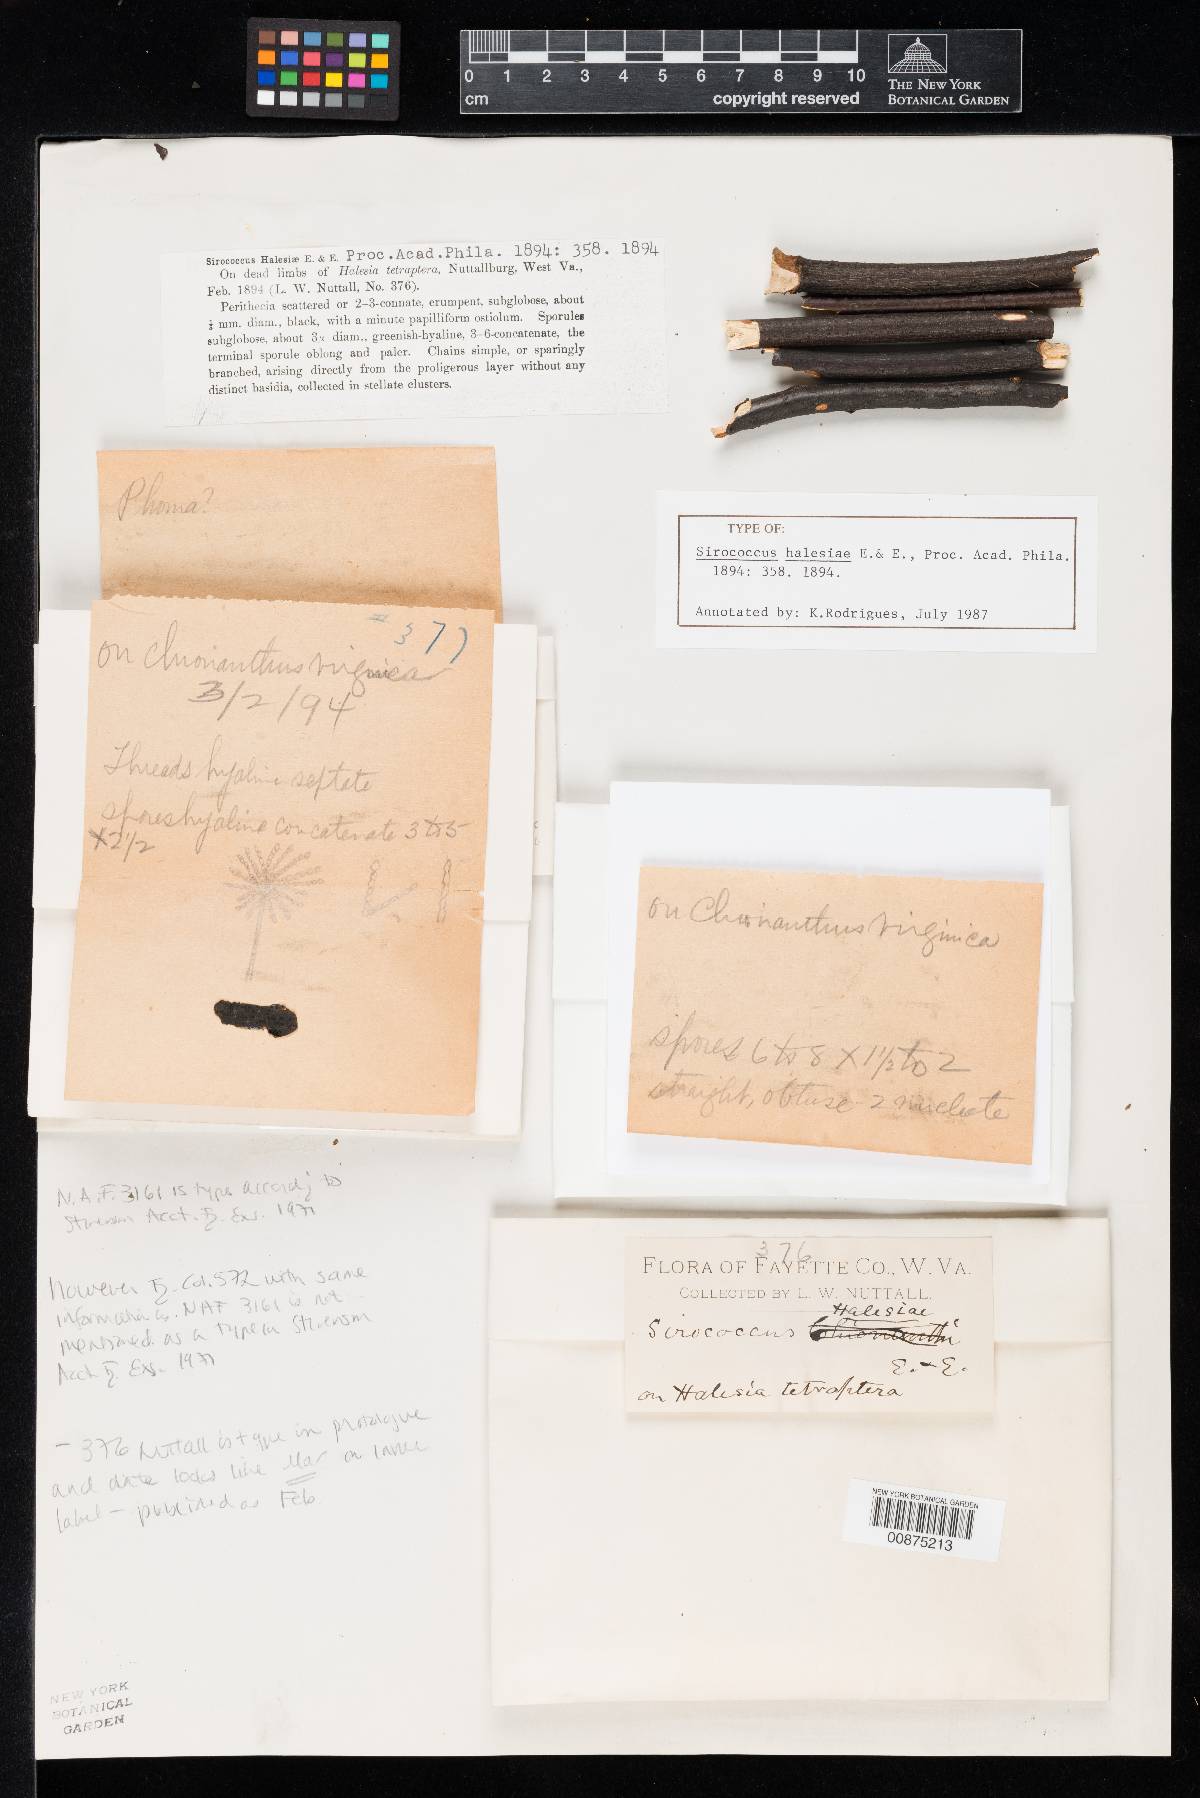 0 1 2 3 4 5 6 7 8 9 10
cm
copyright reserved
THE NEW YORK
BOTANICAL GARDEN
Sirococcus Halesiæ E. & E. Proc.Acad.Phila. 1894: 358. 1894
On dead limbs of Halesia tetraptera, Nuttallburg, West Va.,
Feb. 1894 (L. W. Nuttall, No. 376).
Perithecia scattered or 2–3-connate, erumpent, subglobose, about
mm. diam., black, with a minute papilliform ostiolum. Sporules
subglobose, about 3µ diam., greenish-hyaline, 3–6-concatenate, the
terminal sporule oblong and paler. Chains simple, or sparingly
branched, arising directly from the proligerous layer without any
distinct basidia, collected in stellate clusters.
Phoma?
TYPE OF:
Sirococcus halesiae E.& E., Proc. Acad. Phila.
1894: 358. 1894.
Annotated by: K.Rodrigues, July 1987
# 377
on Chionanthus virginica
3/2/94
Threads hyaline septate
spores hyaline concatenate 3 to 5
x 2 1/2
on Chionanthus virginica
spores 6 to 8 X 1 1/2 to 2
straight, obtuse - 2 nucleate
N.A.F. 3161 is type according to
Stevenson Acct. Fg. Exs. 1971
However Fg. Col. 572 with same
information as NAF 3161 is not
mentioned as a type in Stevenson
Acct. Fg. Exs. 1971
– 376 Nuttall is type in protologue
and date looks like Mar on inner
label – published as Feb.
376
FLORA OF FAYETTE CO., W. VA.
COLLECTED BY L. W. NUTTALL.
Halesiae
Sirococcus Chionanthi
E. & E.
on Halesia tetraptera
NEW YORK BOTANICAL GARDEN
00875213
NEW YORK
BOTANICAL
GARDEN